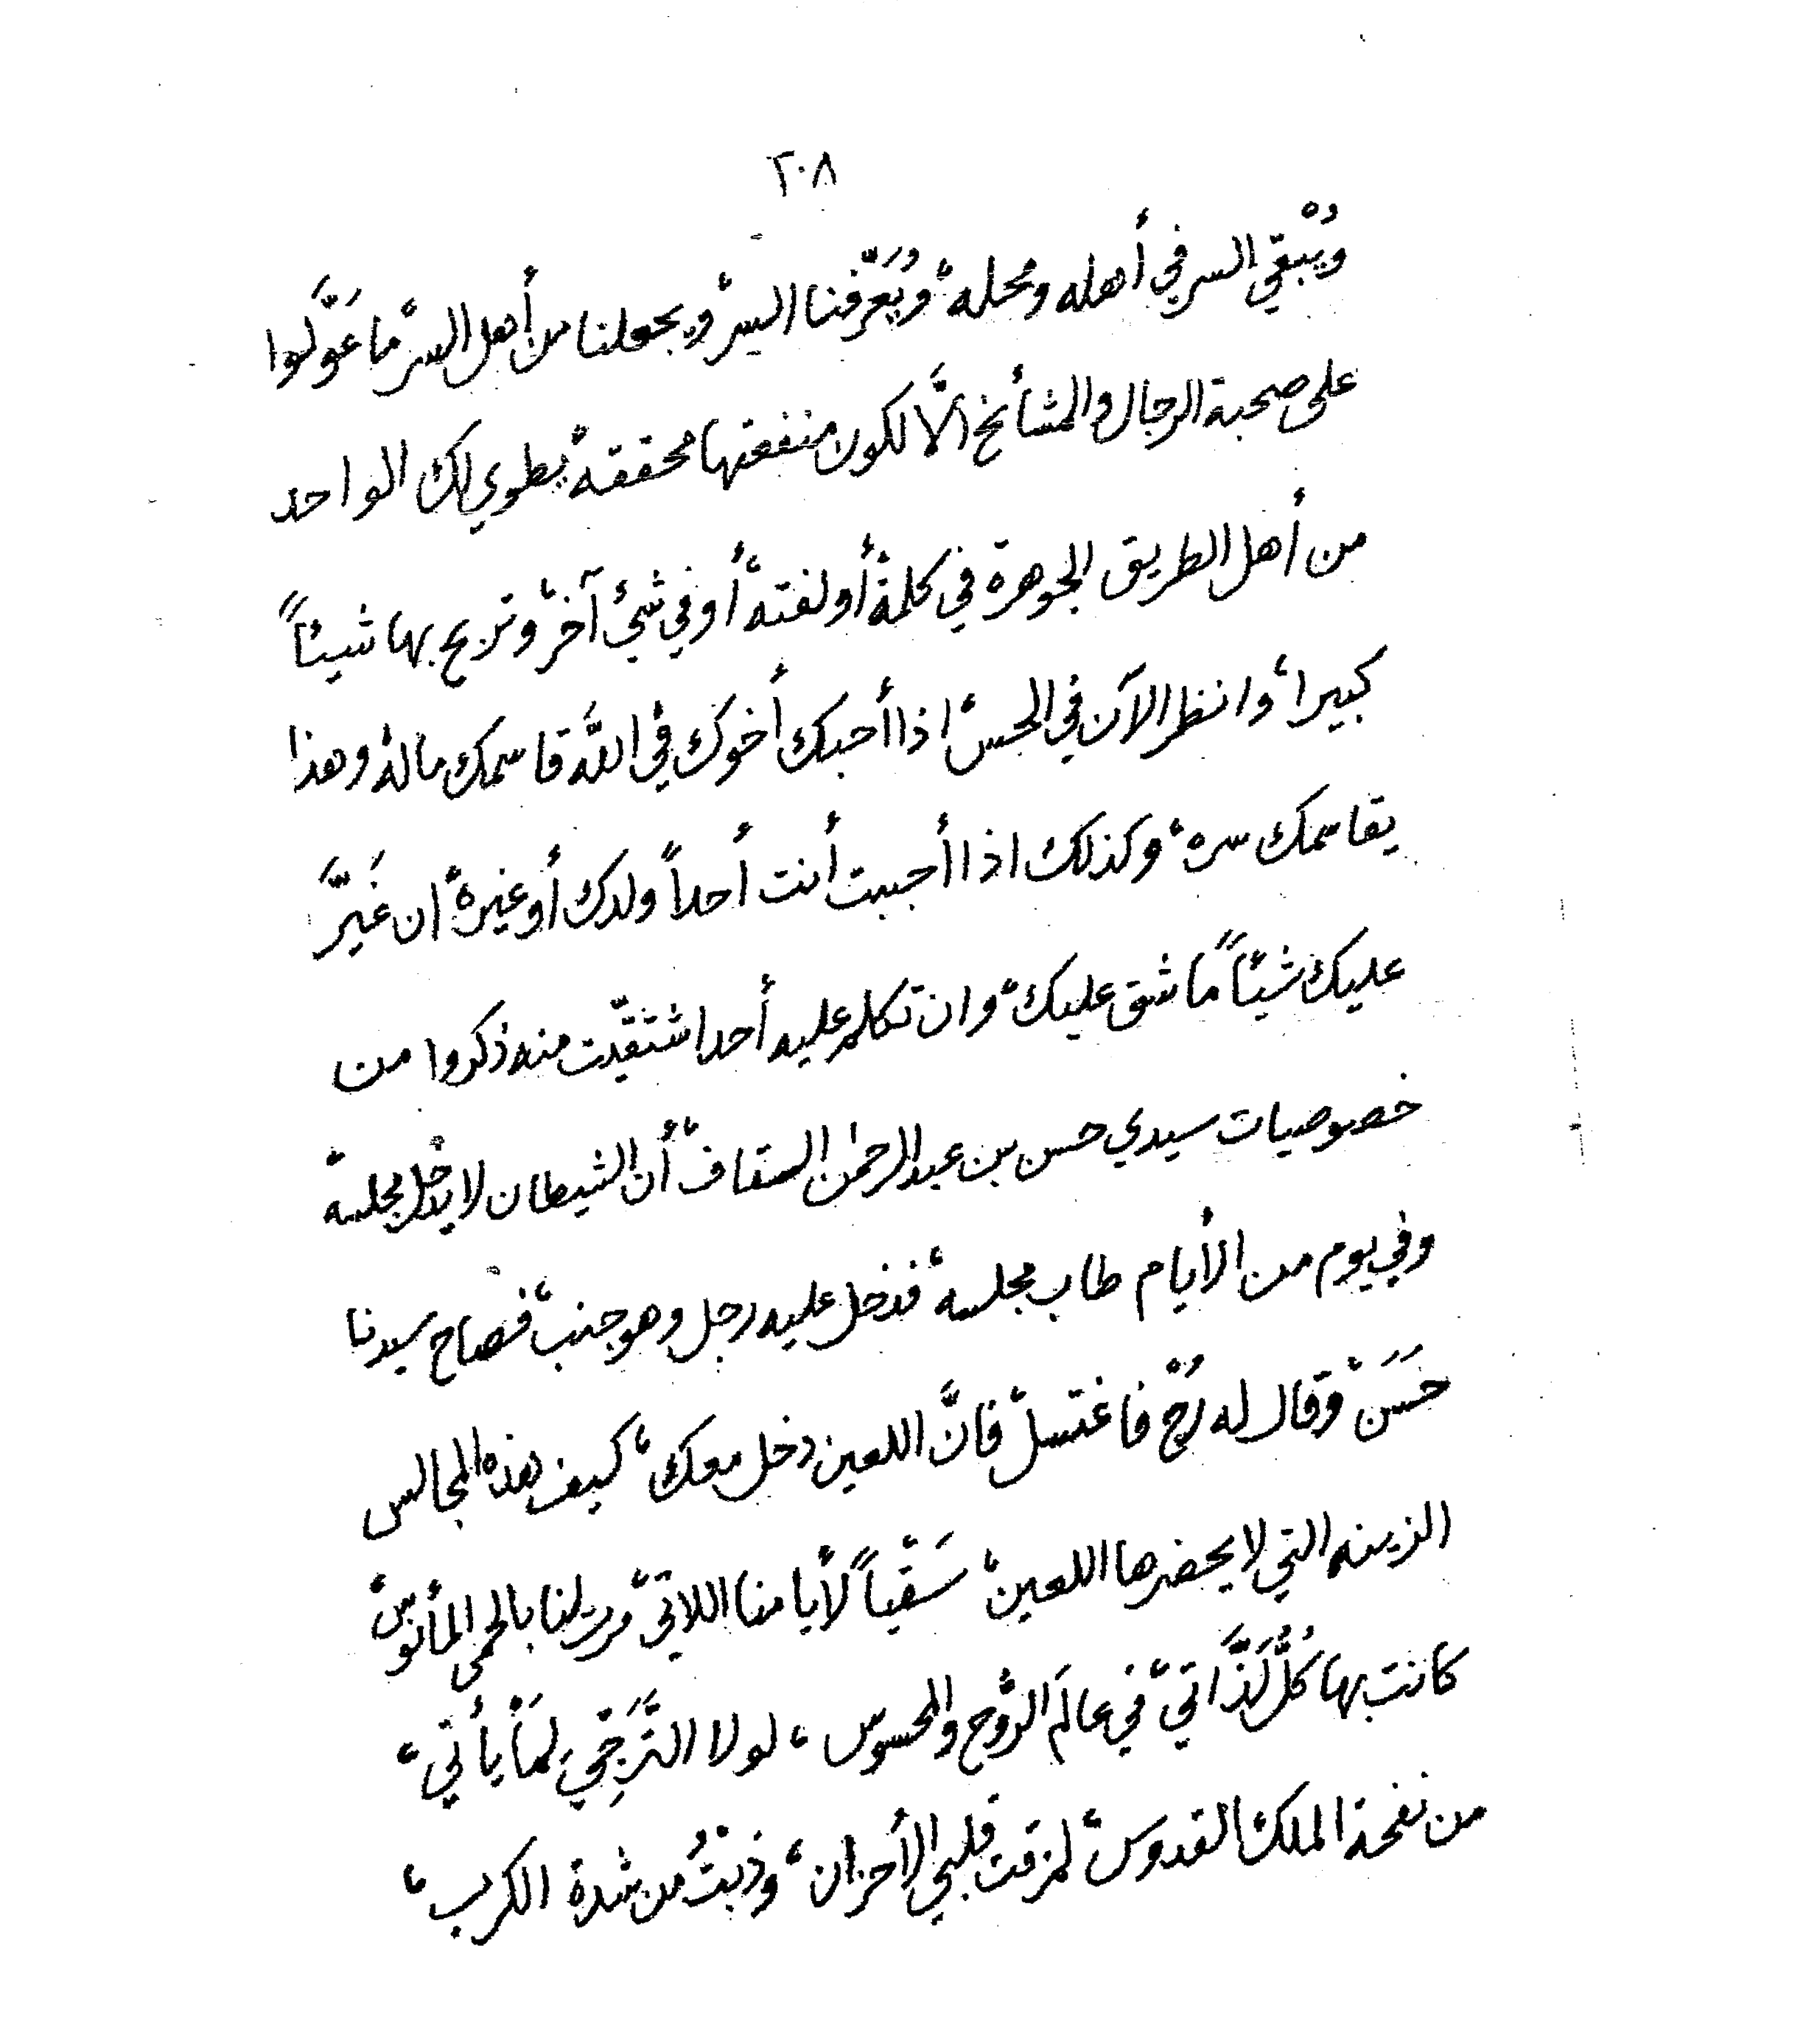 ٢٠٨
ويُبْقي السر في أهله ومحله، ويُعَرِّفنا السر، ويجعلنا من أهل السر، ما عَوَّلوا
على صحبة الرجال والمشائخ الَّا لكون منفعتها محققه، يطوي لك الواحد
من أهل الطريق الجوهرة في كلمة، أو لفته، أو في شئ آخر، وتربح بها شيئاً
كبيرا، وانظر الآن في الحس، اذا أحبك أخوك في اللَّه قاسمك ماله، وهذا
يقاسمك سره، وكذلك اذا أحببت أنت أحداً ولدك أو غيره، ان غَيَّر
عليك شيئاً ما شق عليك، وان تكلم عليه أحد اشتقيّت منه، ذكروا من
خصوصيات سيدي حسن بن عبدالرحمٰن السقاف، أن الشيطان لا يدخل مجلسه،
وفي يوم من الأيام طاب مجلسه، فدخل عليه رجل وهو جنب، فصاح سيدنا
حَسَنْ، وقال له رُحْ فاغتسل، فانَّ اللعين دخل معك، كيف هذه المجالس
الزينه التي لا يحضرها اللعين، سَقْياً لأيامنا اللاتي، مرت لنا بالحمى المأنوس،
كانت بها كُلُّ لَذَّاتي، في عالَم الرُّوح والمحسوس، لولا التَّرَجِّي لِمَا يأتي،
من نفحة الملك القدوس، لمزقت قلبي الأحزان، وذبتُ من شدة الكرب،